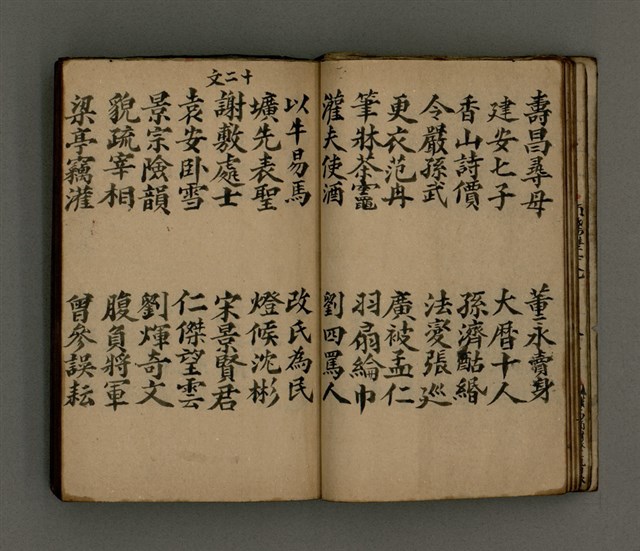 壽昌尋母 董永賣身
建安七子 大暦十人
香山詩價 孫濟酤緡
令嚴孫武 法変張巡
更衣范冉 廣被孟仁
筆牀茶竈 羽扇綸巾
灌夫使酒 劉四罵人
以牛易馬 改氏為民
壙先表聖 燈候沈彬
十二文
謝敷處士 宋景賢君
袁安卧雪 仁傑望雲
景宗險韻 劉煇奇文
貌疏宰相 腹負將軍
梁亭竊灌 曾參誤耘